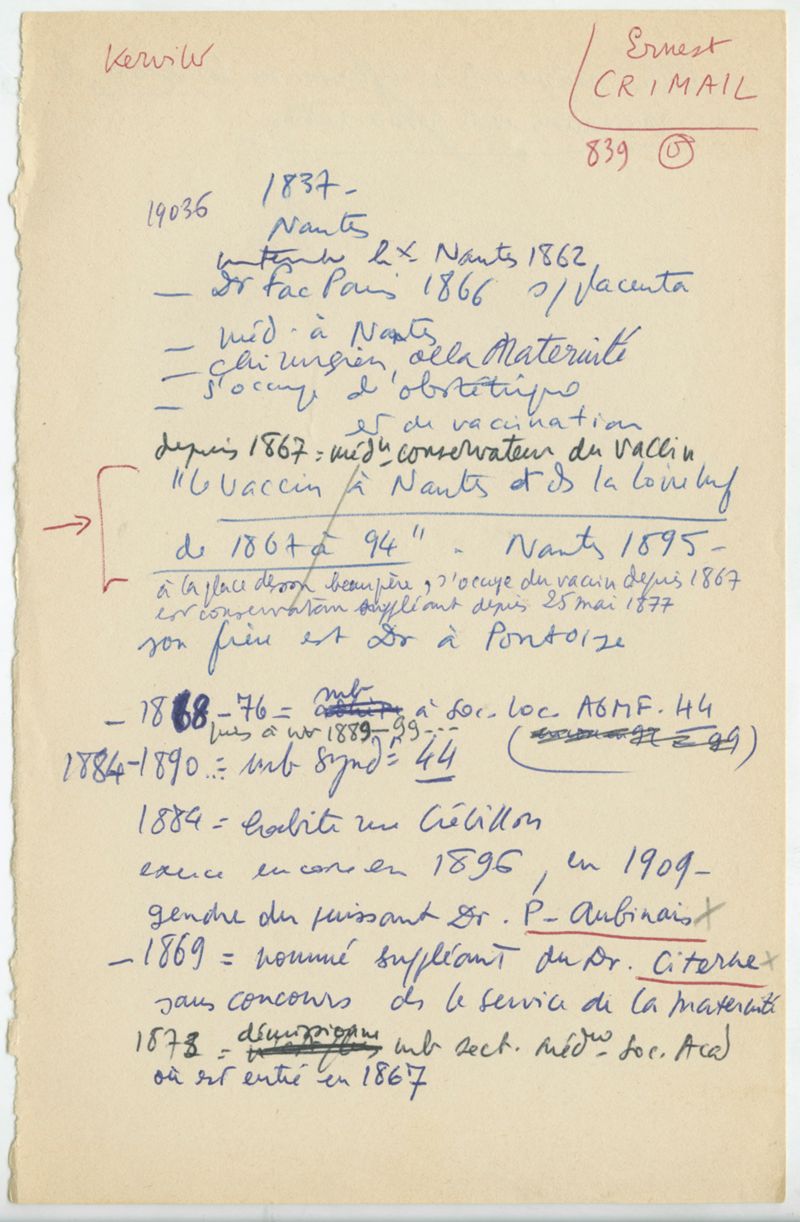 Kerviler
Ernest
CRIMAIL
839
19036
1837-
Nantes
Nantes 1862
— Dr Fac Paris 1866 s/placenta
— méd. à Nantes
— chirurgien de la Maternité
— s'occupe d'obstétrique
et de vaccination
depuis 1867 = médn conservateur du vaccin
"le vaccin à Nantes et ds la Loire Inf
de 1867 à 94". Nantes 1895-
à la place de son beau père, s'occupe du vaccin depuis 1867
est conservateur suppléant depuis 25 mai 1877
son frère est Dr à Pontoise
— 1868-76 = mb à Soc. loc. AGMF. 44
puis à nv 1889-99---
1884-1890 = mb Syndt = 44
1884 = habite rue Crébillon
exerce encore en 1896, en 1909-
gendre du puissant Dr. P- Aubinais x
— 1869 = nommé suppléant du Dr. Citerne x
sans concours ds le service de la maternité
1878 = démissionne mb sect. méd. Soc. Acad
où est entré en 1867